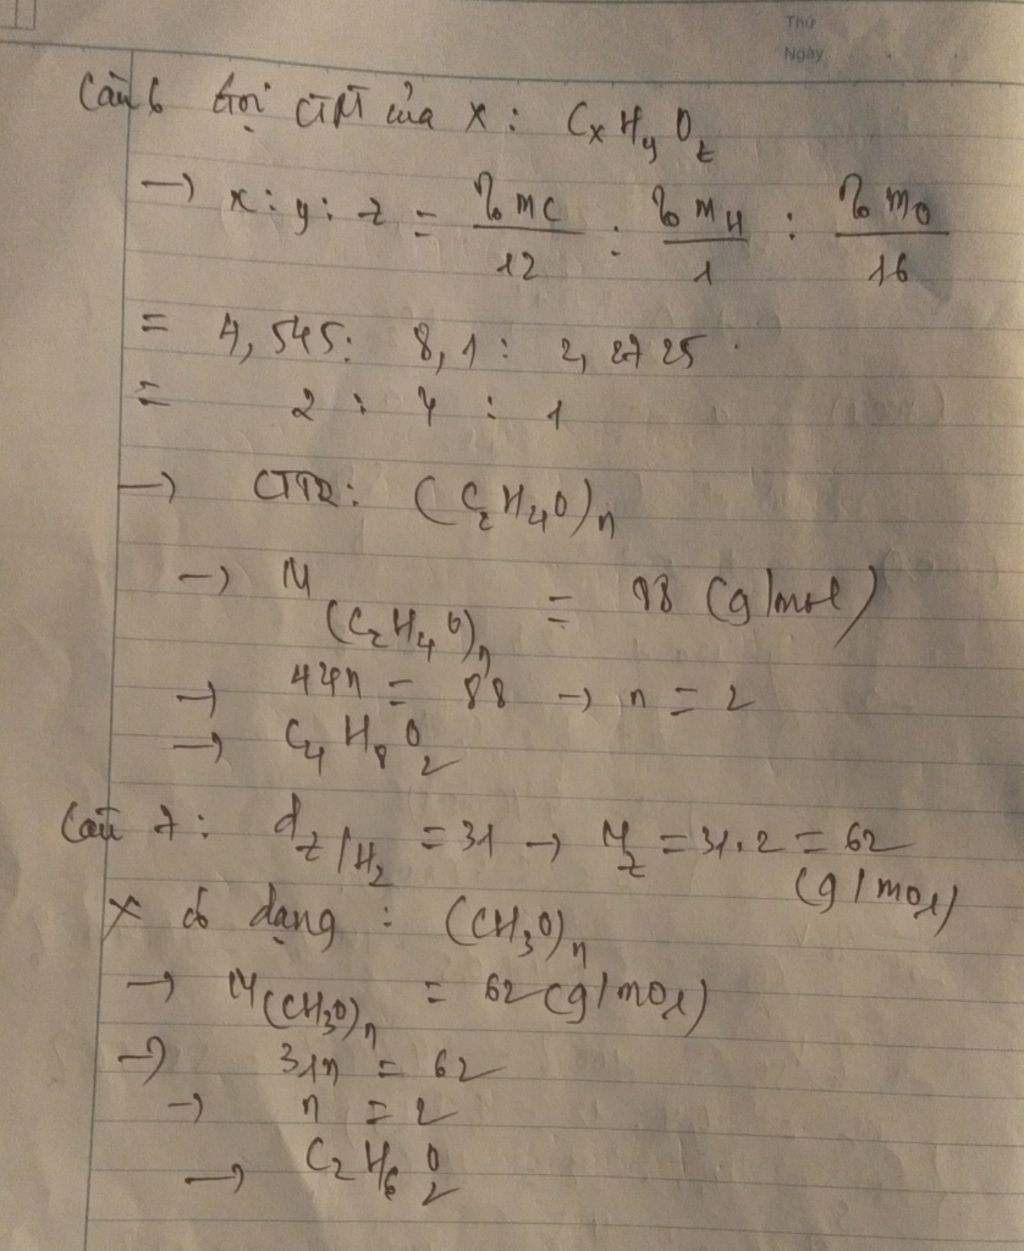 Thứ
Ngày
Câu 6 Gọi CTPT của X : CₓHᵧO_z
→ x : y : z = %mC/12 : %mH/1 : %mO/16
= 4,545 : 8,1 : 2,2725
= 2 : 4 : 1
→ CTTQ : (C₂H₄O)ₙ
→ M (C₂H₄O)ₙ = 88 (g/mol)
→ 44n = 88 → n = 2
→ C₄H₈O₂
Câu 7 : d z/H₂ = 31 → M_z = 31.2 = 62 (g/mol)
X có dạng : (CH₃O)ₙ
→ M (CH₃O)ₙ = 62 (g/mol)
→ 31n = 62
→ n = 2
→ C₂H₆O₂